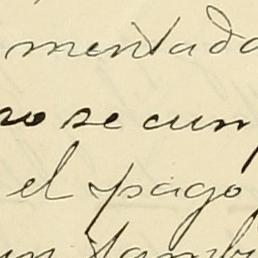 mentado
ro se cum
el pago
un tambi